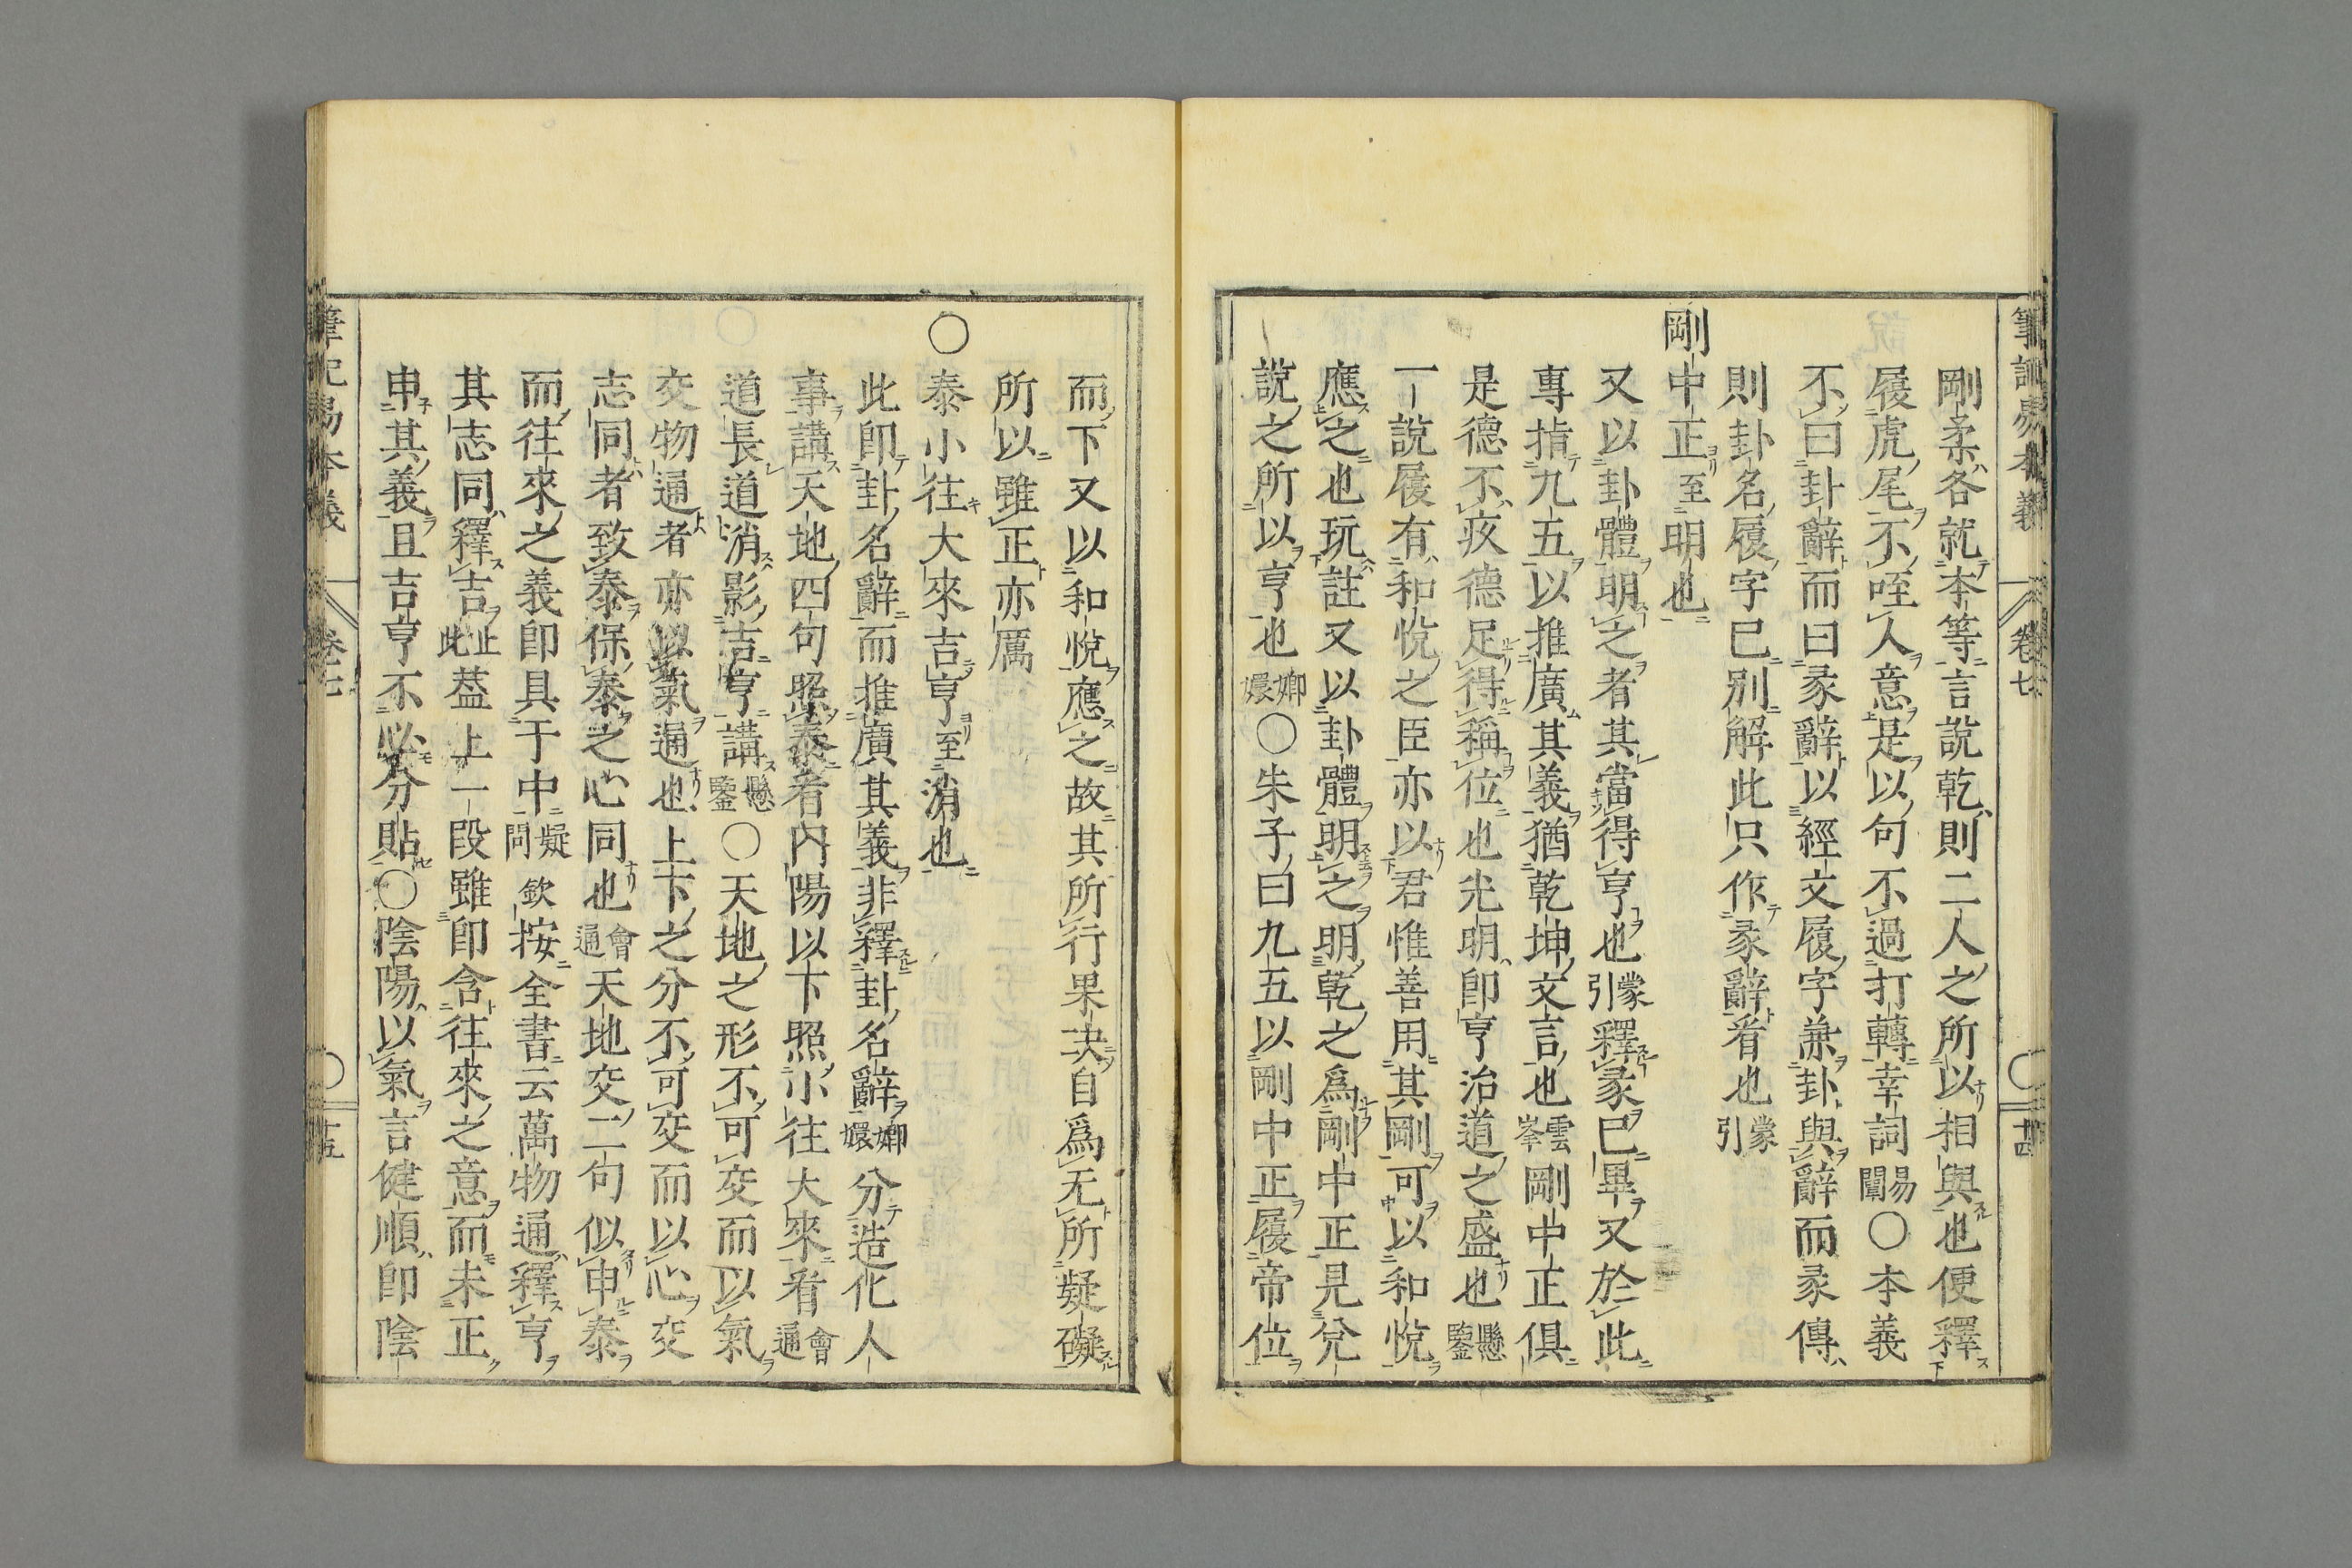 筆記易本義 卷七 十四
剛柔各就本等言說乾則二人之所以相與也便釋
履虎尾不咥人意是以句不過打轉幸詞易闡〇本義
不曰卦辭而曰彖辭以經文履字兼卦與辭而彖傳
則卦名履字已別解此只作彖辭看也蒙引
剛中正至明也
又以卦體明之者其當得亨也蒙引釋彖已畢又於此
專指九五以推廣其義猶乾坤文言也雲峯剛中正俱
是德不疚德足得稱位也光明即亨治道之盛也懸鑒
一說履有和悅之臣亦以君惟善用其剛可以和悅
應之也玩註又以卦體明之明乾之為剛中正見兌
說之所以亨也嫏嬛〇朱子曰九五以剛中正履帝位
而下又以和悅應之故其所行果決自為无所疑礙
所以雖正亦厲
〇泰小往大來吉亨至消也
此即卦名辭而推廣其義非釋卦名辭嫏嬛分造化人
事講天地四句照泰看內陽以下照小往大來看會通
道長道消影吉亨講懸鑒〇天地之形不可交而以氣
交物通者亦以氣通也上下之分不可交而以心交
志同者致泰保泰之心同也會通天地交二句似申泰
而往來之義即具于中疑問欽按全書云萬物通釋亨
其志同釋吉止此葢上一段雖即含往來之意而未正
申其義且吉亨不必分貼〇陰陽以氣言健順即陰
筆記易本義 卷七 十五